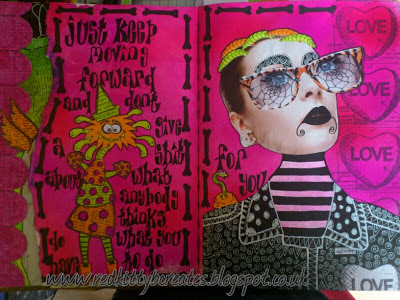 just keep
moving
forward
and dont
give
a shit
about what
anybody
thinks
do what you
have to do
for
you
LOVE
LOVE
LOVE
LOVE
LOVE
www.redkittybcreates.blogspot.co.uk